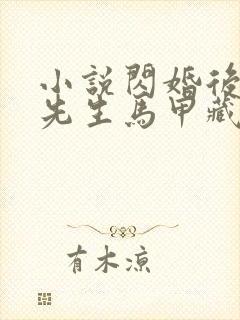 小說閃婚後
先生馬甲藏
有木涼